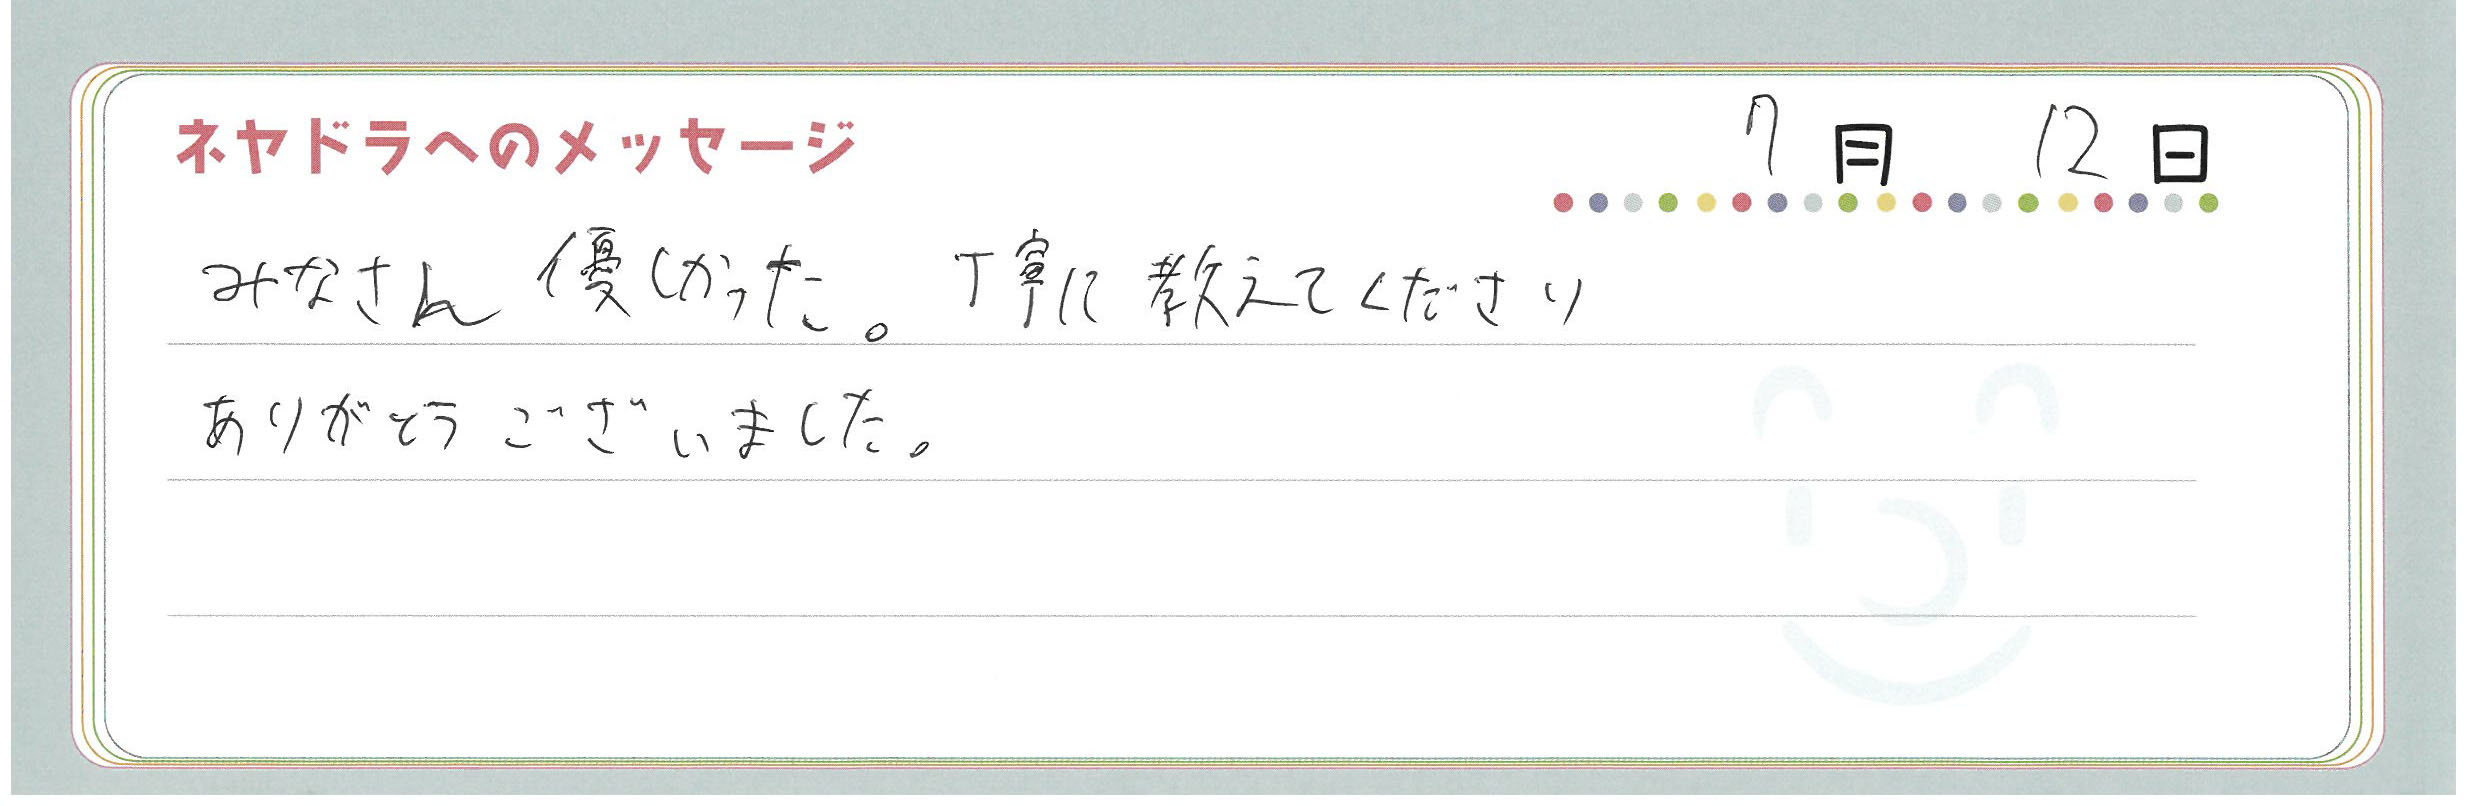 ネヤドラへのメッセージ 7月 12日
みなさん 優しかった。丁寧に 教えてくださり
ありがとうございました。